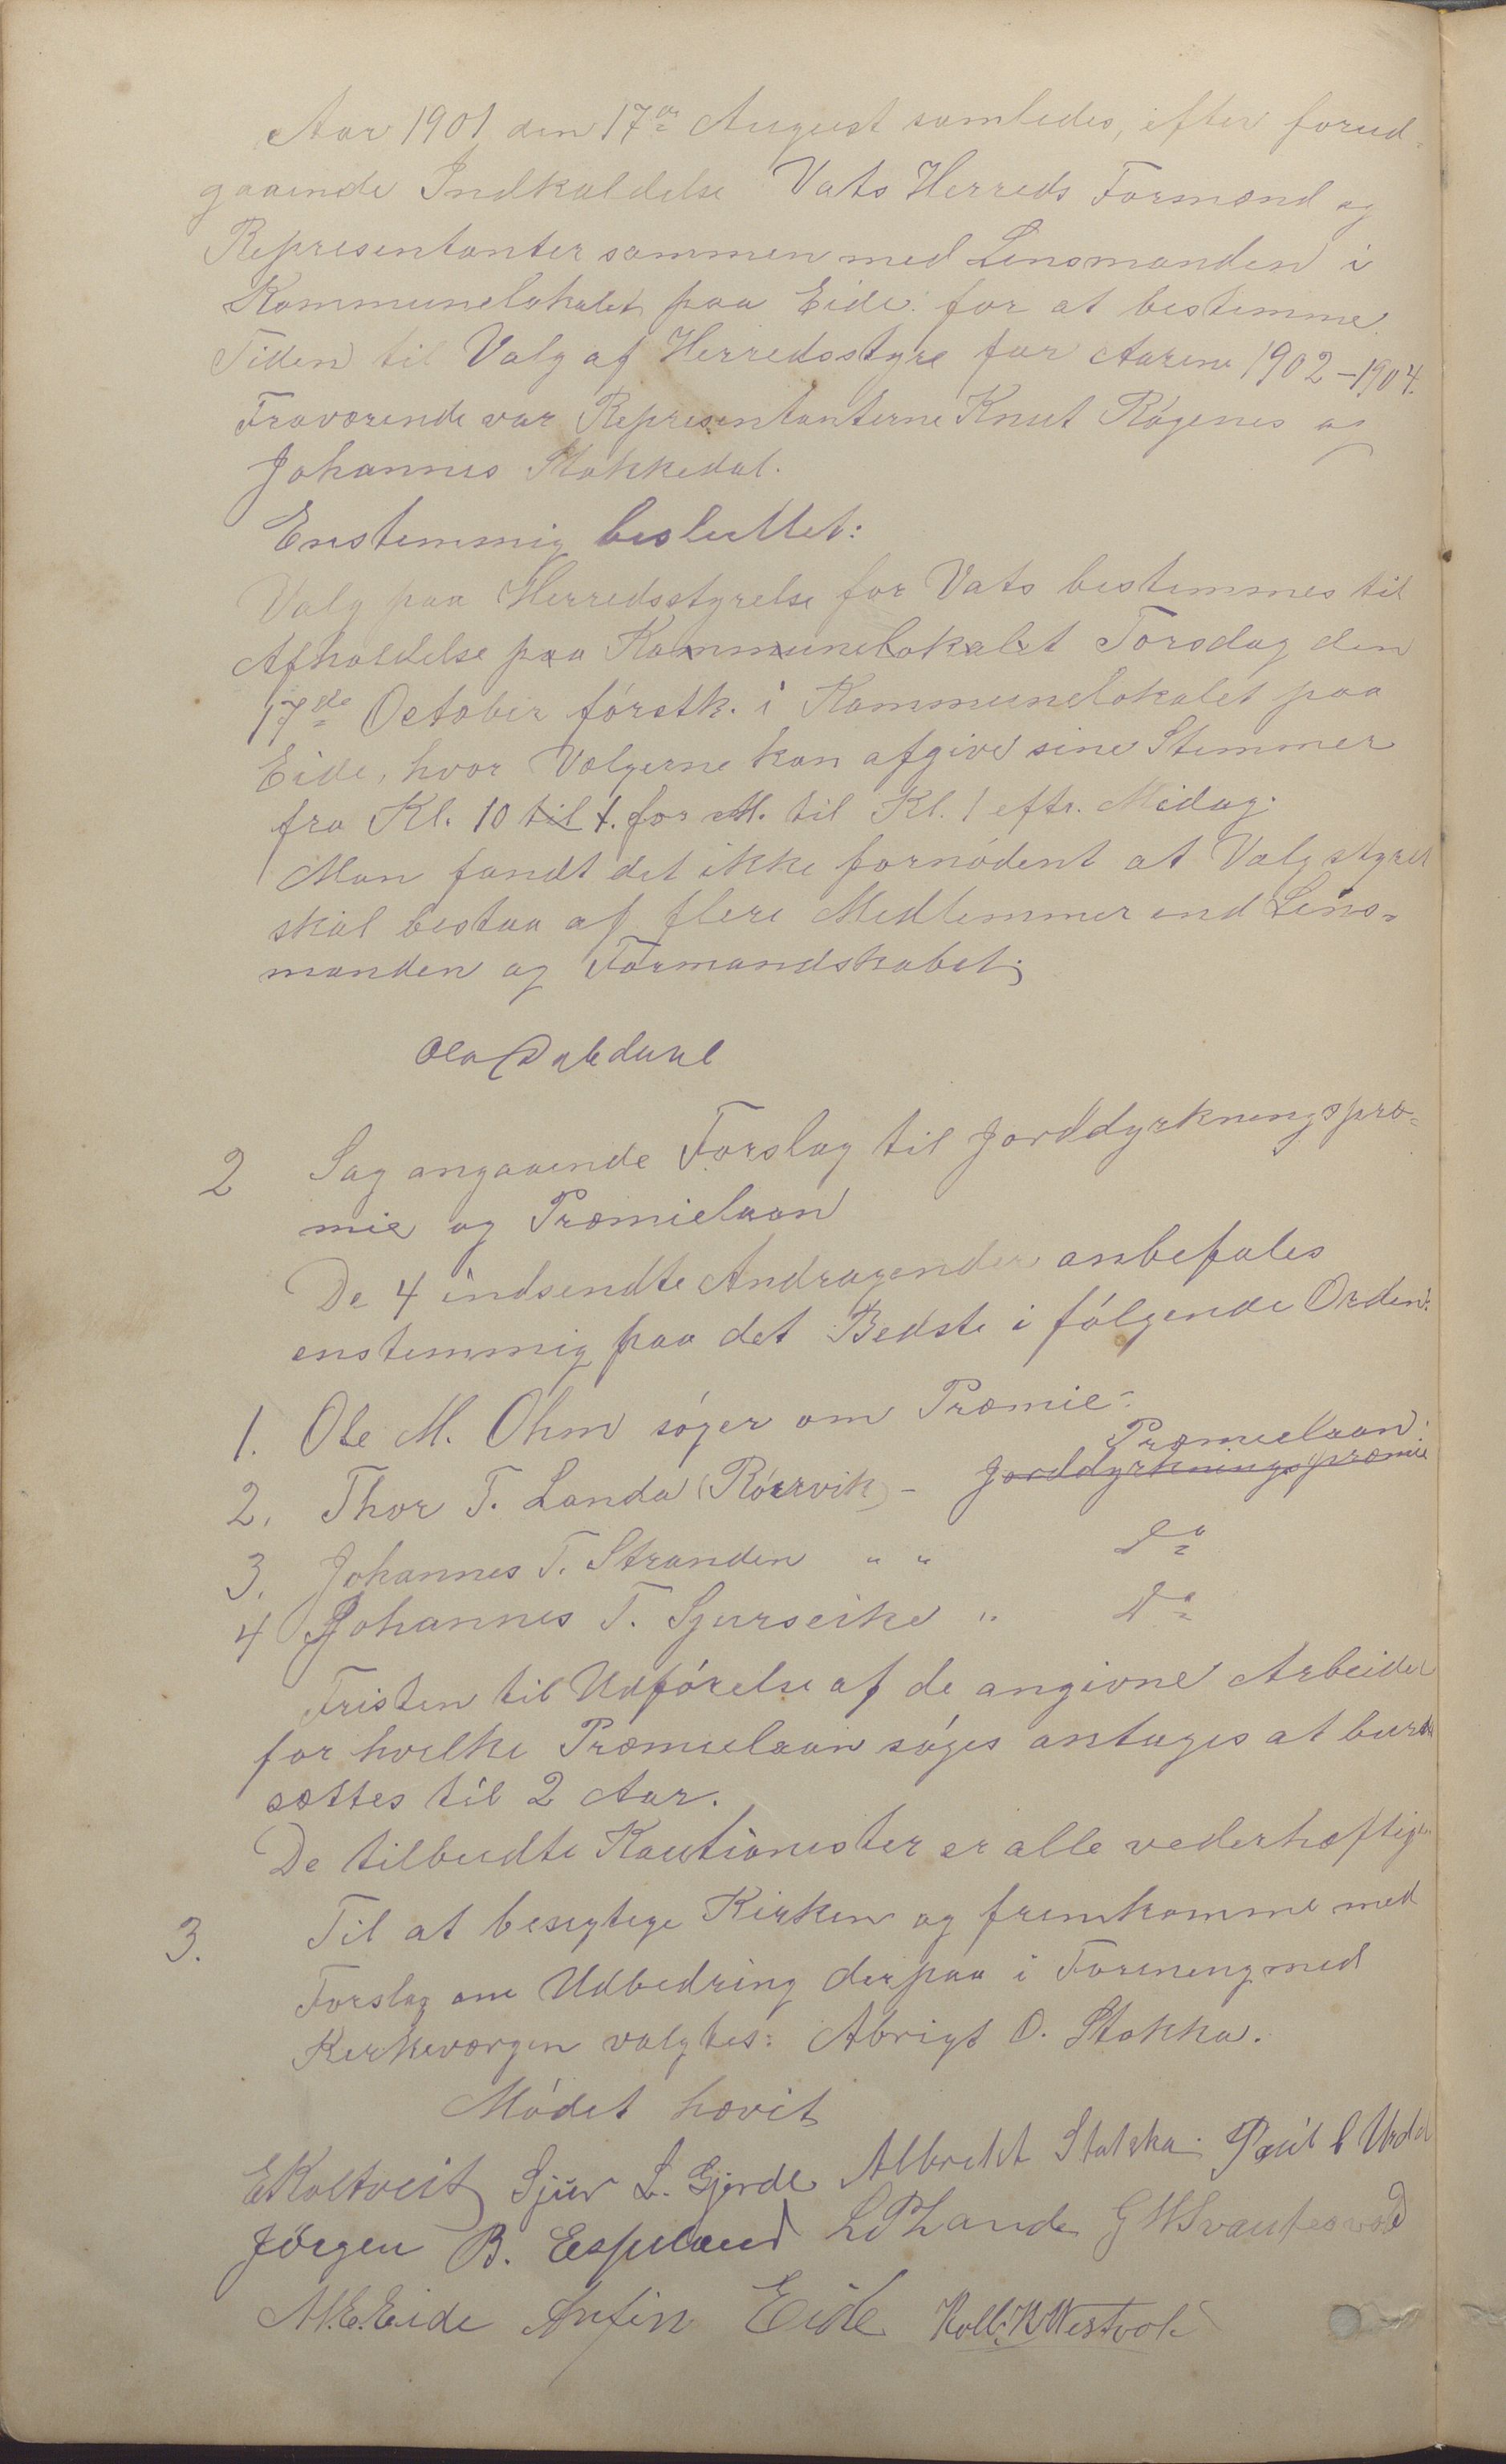 Aar 1901 den 17de August samledes, efter forud-
gaaende Indkaldelse Vats Herreds Formænd og
Repræsentanter sammen med Lensmanden i
Kommunelokalet paa Eide for at bestemme
Tiden til Valg af Herredsstyre for Aarene 1902-1904.
Fraværende var Repræsentanterne Knut Rágenes og
Johannes Stokkedal.
Enstemmig besluttet:
Valg paa Herredsstyrelse for Vats bestemmes til
Afholdelse paa Kommunelokalet Torsdag den
17de October fórstk. i Kommunelokalet paa
Eide, hvor Vælgerne kan afgive sine Stemmer
fra Kl. 10 til 1. for M. til Kl. 1 eftr. Midag.
Man fandt det ikke fornódent at Valgstyret
skal bestaa af flere Medlemmer end Lens-
manden og Formandskabet.
Ola Dybdahl
2 Sag angaaende Forslag til Jorddyrkningspræ-
mie og Præmielaan
De 4 indsendte Andragender anbefales
enstemmig paa det Bedste i fólgende Orden:
1. Ole M. Ohm sóger om Præmie -
Præmielaan
2. Thor T. Landa (Rórvik) - Jorddyrkningspræmie
3. Johannes T. Stranden " " Do
4 Johannes T. Sjurseike " Do
Fristen til Udfórelse af de angivne Arbeider
for hvilke Præmielaan sóges antages at burde
sættes til 2 Aar.
De tilbudte Kautionister er alle vederhæftige.
3. Til at besigtige Kirken og fremkomme med
Forslag om Udbedring derpaa i Forening med
Kirkeværgen valgtes: Abrigt O. Stokka.
Módet hævet
E Koltveit Sjur L. Gjerde Albrekt Stakka. Paul
Jörgen B. Espeland L P Lande G Svantesvold
M.E. Eide Anfin Eide Kolb. K Westvol